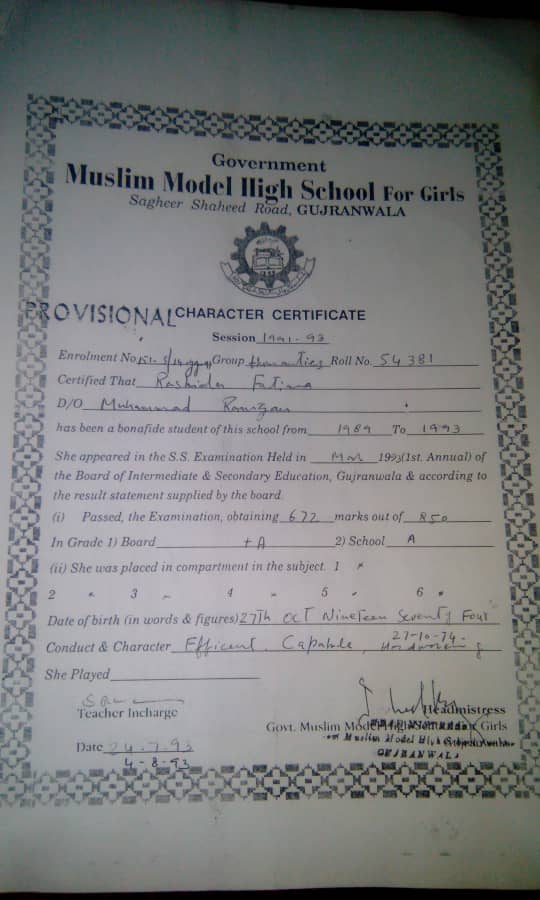 Government
Muslim Model High School For Girls
Sagheer Shaheed Road, GUJRANWALA
PROVISIONAL CHARACTER CERTIFICATE
Session 1991-93
Enrolment No. Group Humanities Roll No. 54381
Certified That Rashida Fatima
D/O Muhammad Ramzan
has been a bonafide student of this school from 1989 To 1993
She appeared in the S.S. Examination Held in 1993(1st. Annual) of
the Board of Intermediate & Secondary Education, Gujranwala & according to
the result statement supplied by the board.
(i) Passed, the Examination, obtaining 672 marks out of 850
In Grade 1) Board +A 2) School A
(ii) She was placed in compartment in the subject. 1 ×
2 3 4 5 6
Date of birth (in words & figures) 27th OCT Nineteen Seventy Four
27-10-74
Conduct & Character Efficent, Capable,
She Played
Teacher Incharge
Headmistress
Govt. Muslim Model High School Girls
Muslim Model High School
GUJRANWALA
Date 24-7-93
4-8-93